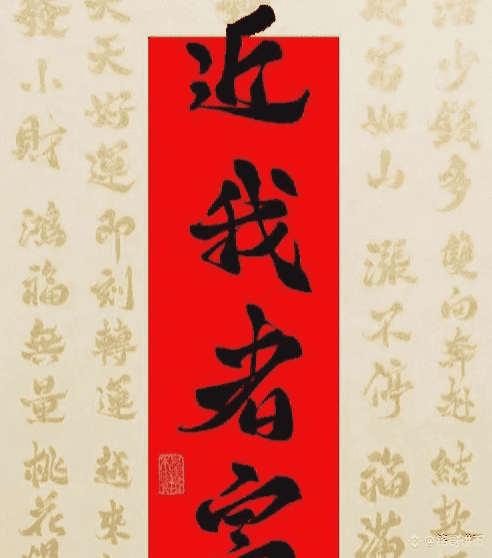 活少錢多 雙向奔赴 結款
富如山 漲不停 福滿
近我者富
天天好運 即刻轉運 越來
發小財 鴻福無量 桃花